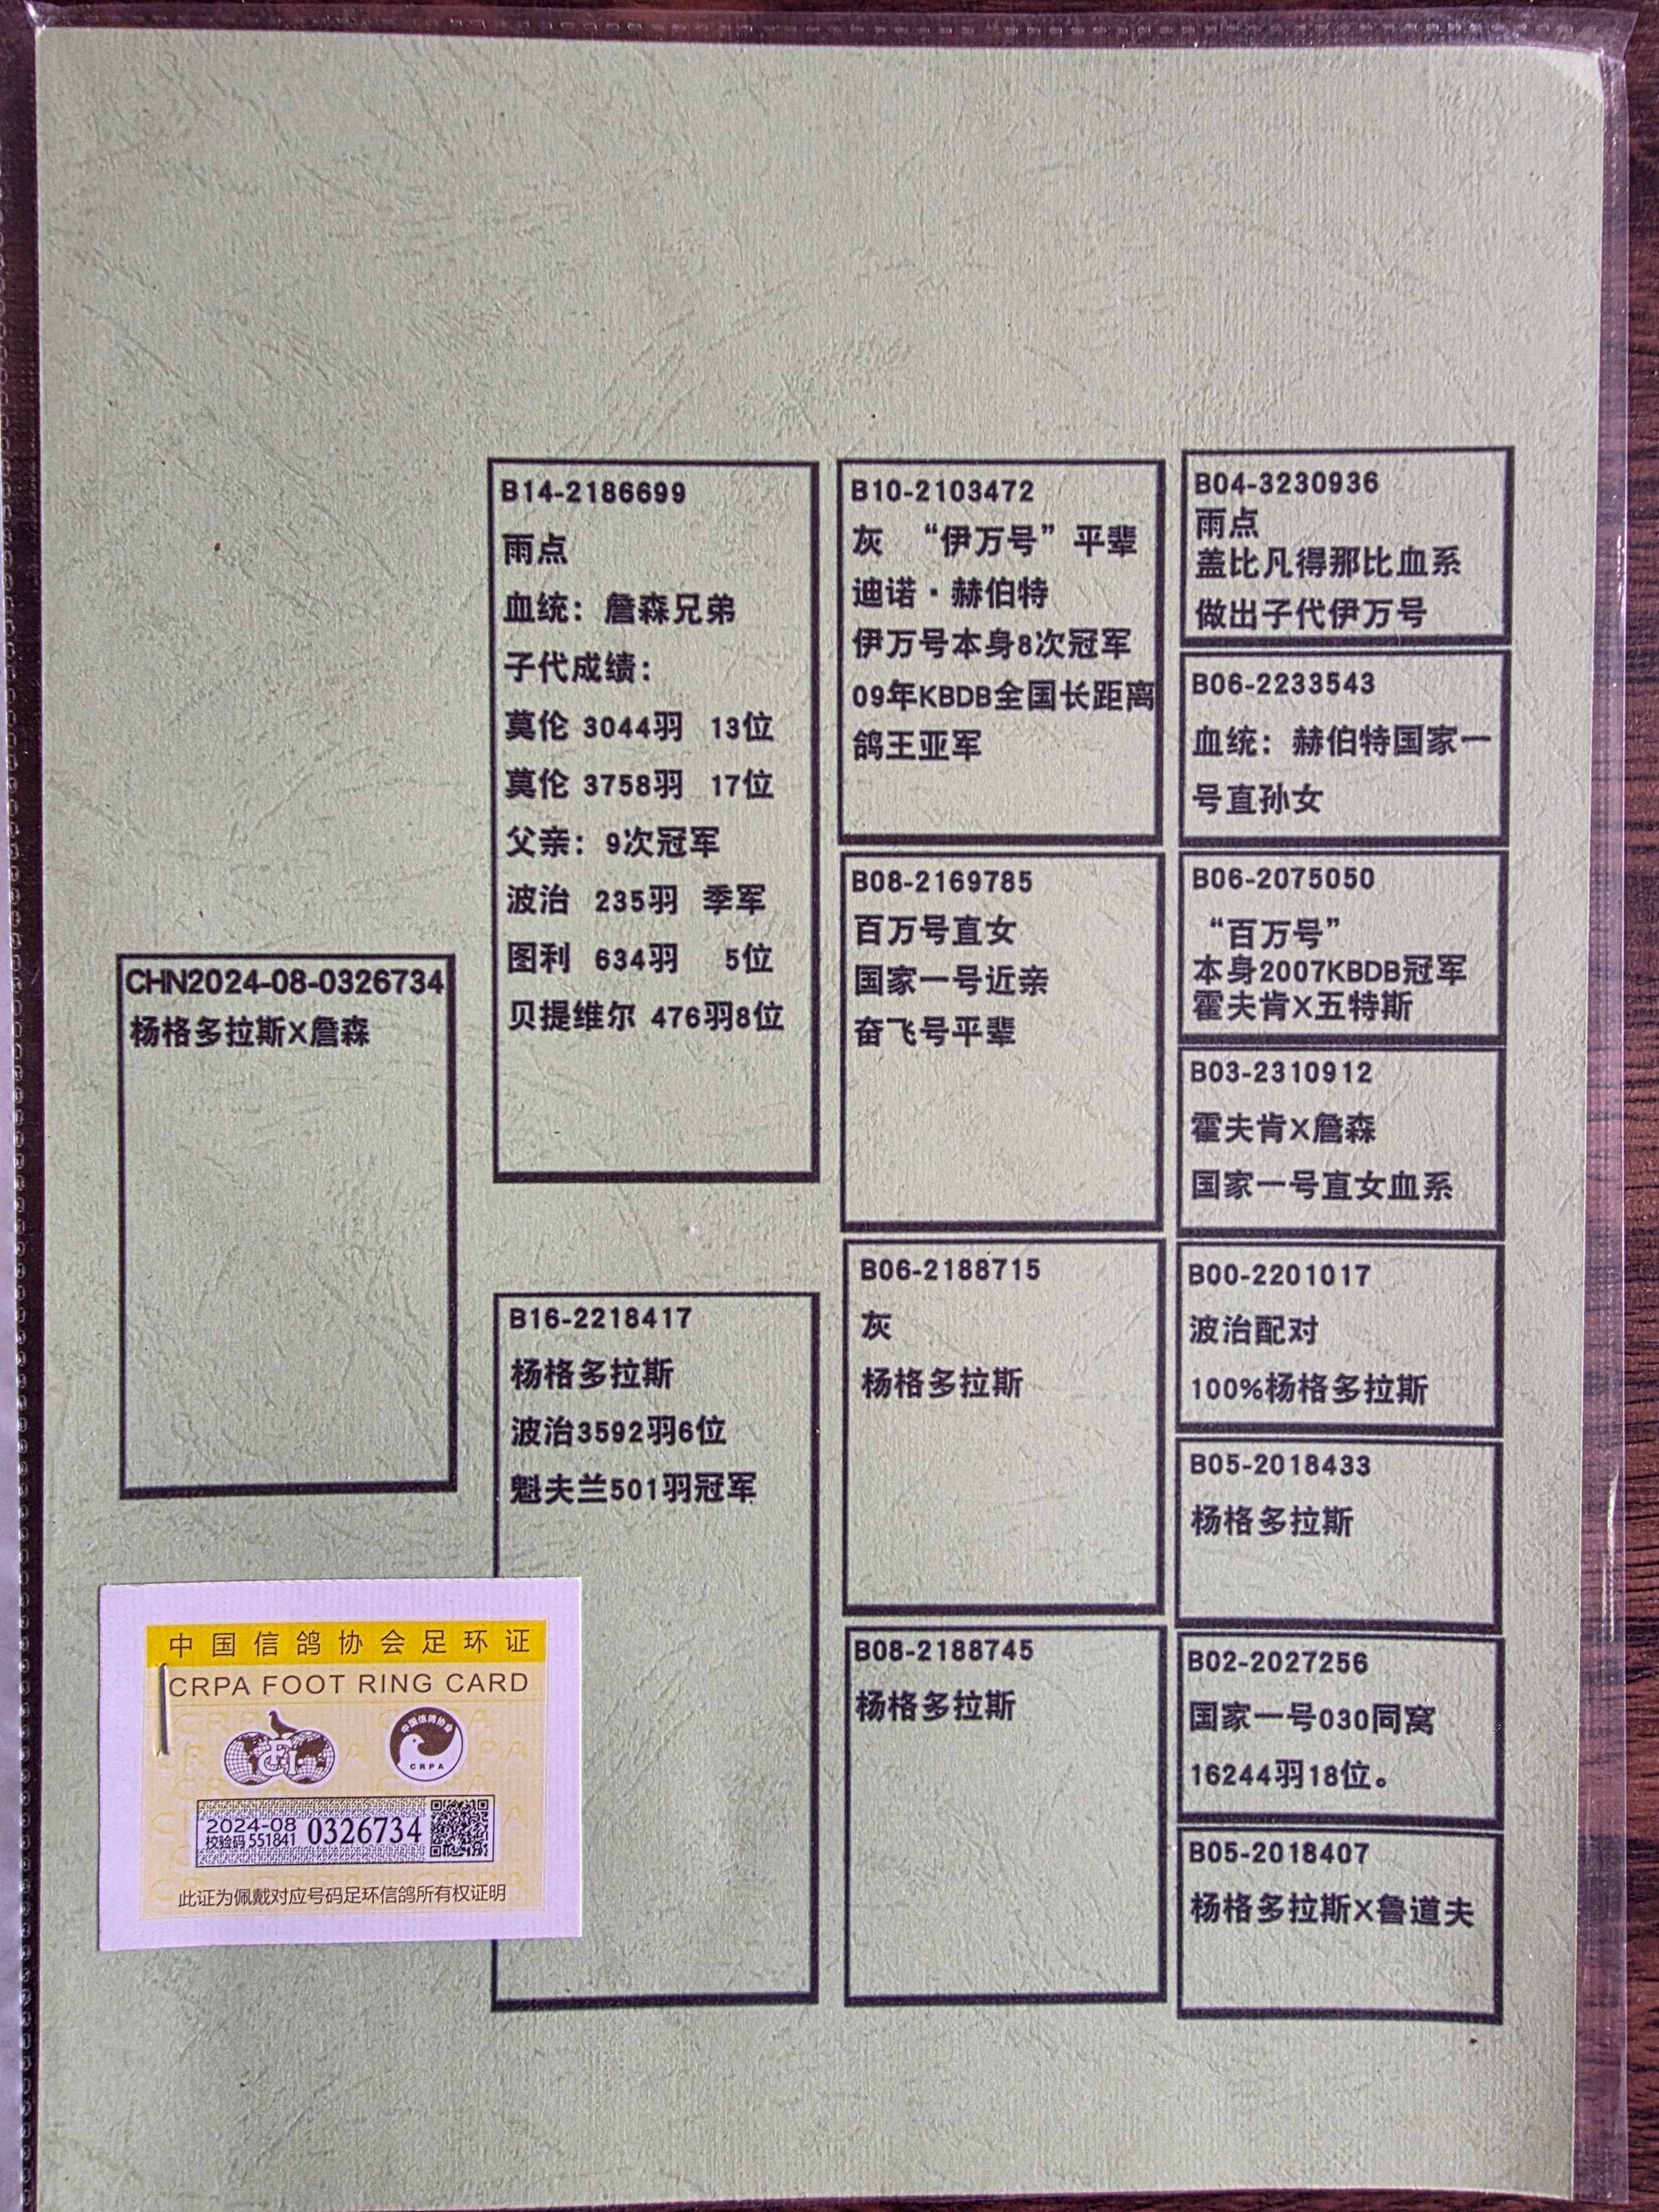 CHN2024-08-0326734
杨格多拉斯X詹森
B14-2186699
雨点
血统：詹森兄弟
子代成绩：
莫伦 3044羽 13位
莫伦 3758羽 17位
父亲：9次冠军
波治 235羽 季军
图利 634羽 5位
贝提维尔 476羽8位
B16-2218417
杨格多拉斯
波治3592羽6位
魁夫兰501羽冠军
B10-2103472
灰 “伊万号”平辈
迪诺·赫伯特
伊万号本身8次冠军
09年KBDB全国长距离
鸽王亚军
B08-2169785
百万号直女
国家一号近亲
奋飞号平辈
B06-2188715
灰
杨格多拉斯
B08-2188745
杨格多拉斯
B04-3230936
雨点
盖比凡得那比血系
做出子代伊万号
B06-2233543
血统：赫伯特国家一
号直孙女
B06-2075050
“百万号”
本身2007KBDB冠军
霍夫肯X五特斯
B03-2310912
霍夫肯X詹森
国家一号直女血系
B00-2201017
波治配对
100%杨格多拉斯
B05-2018433
杨格多拉斯
B02-2027256
国家一号030同窝
16244羽18位。
B05-2018407
杨格多拉斯X鲁道夫
中国信鸽协会足环证
CRPA FOOT RING CARD
中国信鸽协会
CRPA
2024-08
校验码 551841
0326734
此证为佩戴对应号码足环信鸽所有权证明